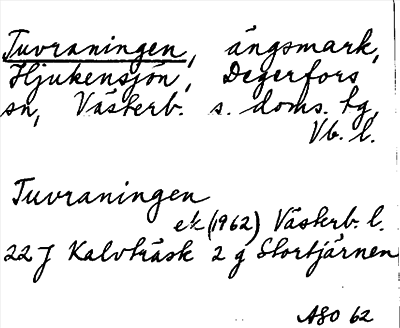 Tuvraningen, ängsmark,
Hjukensjön, Degerfors
sn, Västerb. s. doms. tg,
Vb. l.
Tuvraningen
ek (1962) Västerb. l.
22 J Kalvträsk 2 g Stortjärnen
ASO 62